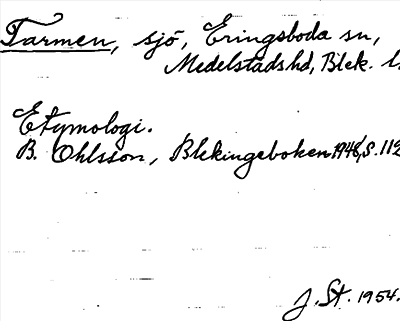 Tarmen, sjö, Eringsboda sn,
Medelstads hd, Blek. l.
Etymologi.
B. Ohlsson, Blekingeboken 1946, s. 112
J. St. 1954.